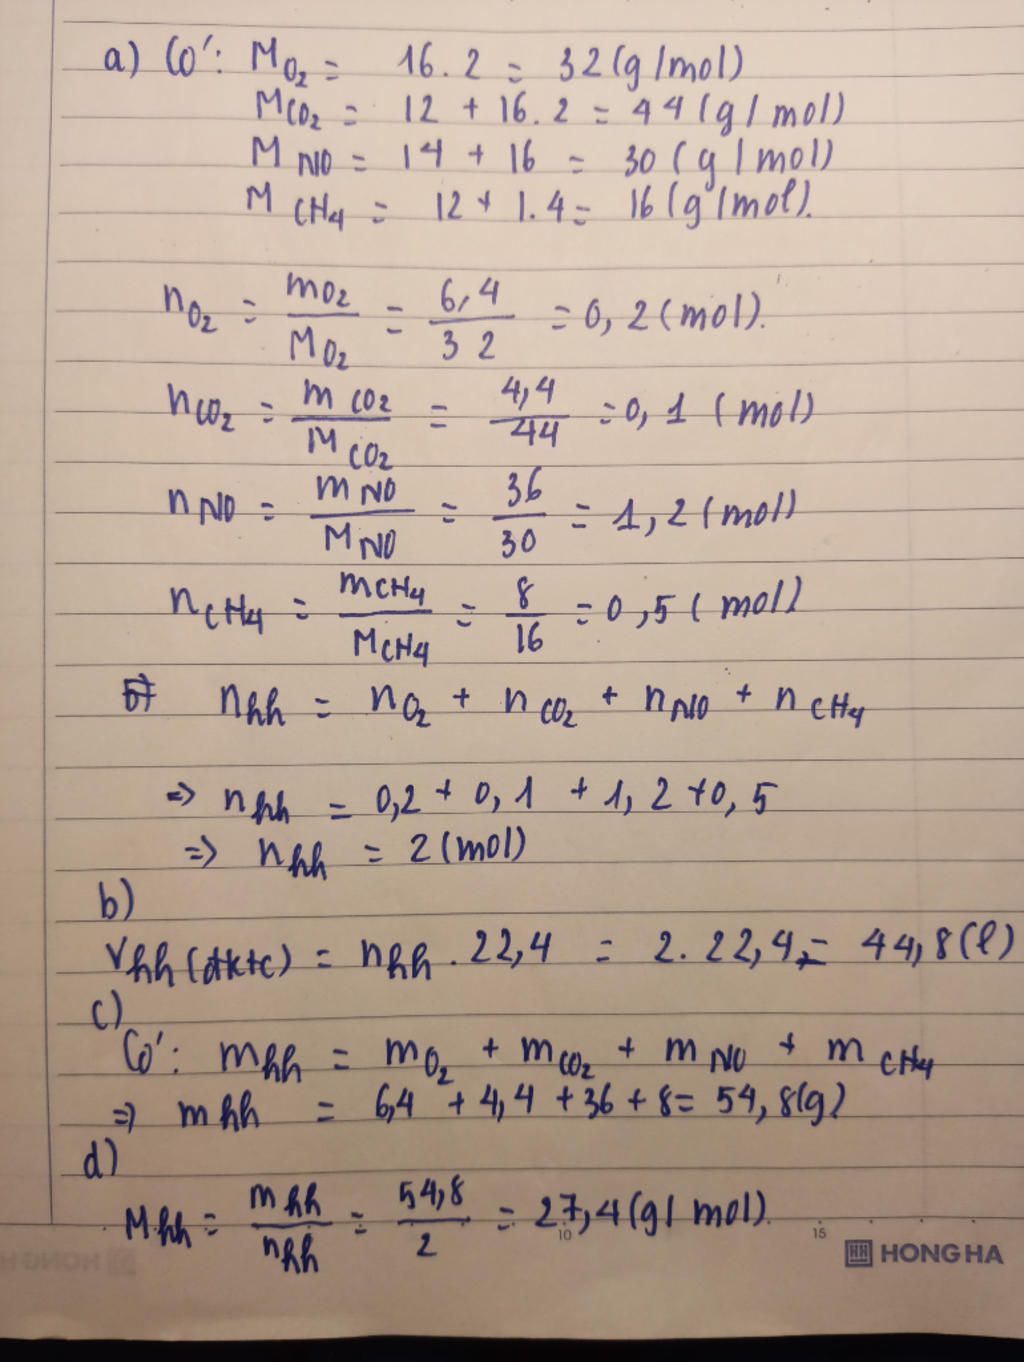 a) Có: M O₂ = 16.2 = 32 (g/mol)
M CO₂ = 12 + 16.2 = 44 (g/mol)
M NO = 14 + 16 = 30 (g/mol)
M CH₄ = 12 + 1.4 = 16 (g/mol).
n O₂ = m O₂ / M O₂ = 6,4 / 32 = 0,2 (mol).
n CO₂ = m CO₂ / M CO₂ = 4,4 / 44 = 0,1 (mol)
n NO = m NO / M NO = 36 / 30 = 1,2 (mol)
n CH₄ = m CH₄ / M CH₄ = 8 / 16 = 0,5 (mol)
n hh = n O₂ + n CO₂ + n NO + n CH₄
=> n hh = 0,2 + 0,1 + 1,2 + 0,5
=> n hh = 2 (mol)
b)
V hh (đktc) = n hh . 22,4 = 2. 22,4 = 44,8 (l)
c)
Có: m hh = m O₂ + m CO₂ + m NO + m CH₄
=> m hh = 6,4 + 4,4 + 36 + 8 = 54,8 (g)
d)
M hh = m hh / n hh = 54,8 / 2 = 27,4 (g/mol).
10 15
HH HONG HA